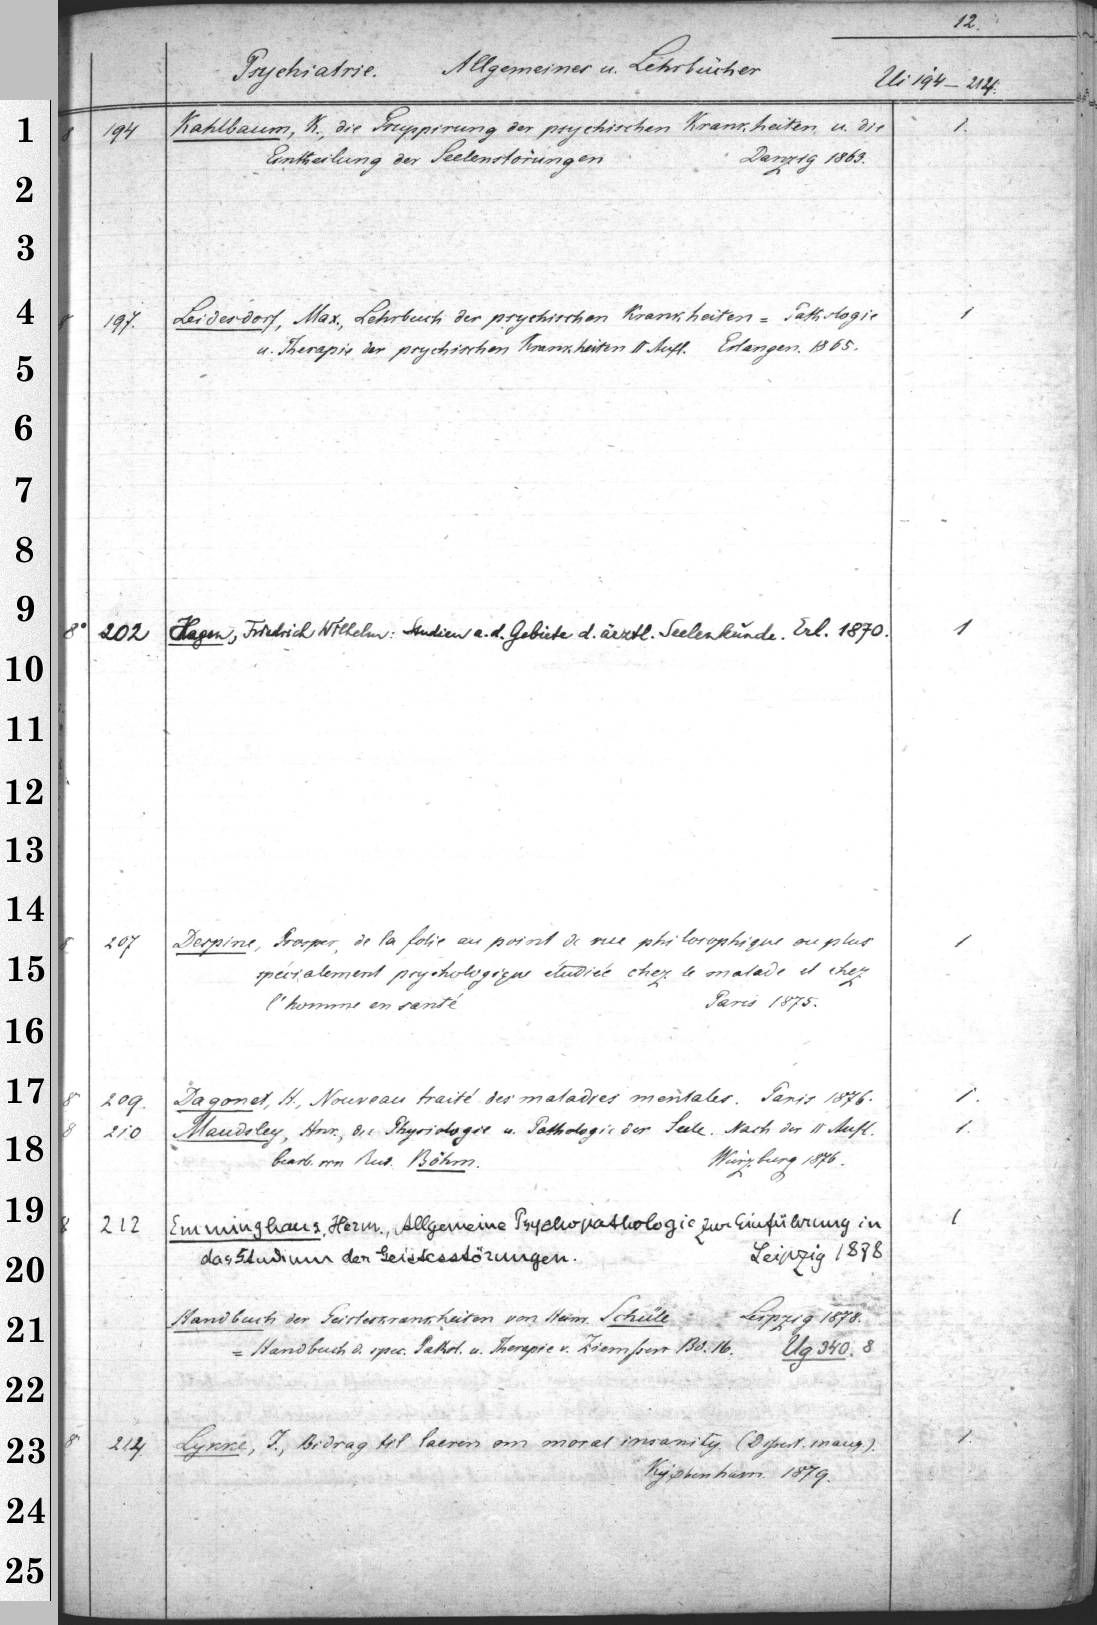 12.
Psychiatrie. Allgemeines u. Lehrbücher Ui 194 – 214.
1 8 194 Kahlbaum, K., die Gruppirung der psychischen Krankheiten u. die 1.
Eintheilung der Seelenstörungen Danzig 1863.
2
3
4 8 197. Leidesdorf, Max., Lehrbuch der psychischen Krankheiten = Pathologie 1
u. Therapie der psychischen Krankheiten II Aufl. Erlangen. 1865.
5
6
7
8
9 8° 202 Hagen, Friedrich Wilhelm: Studien a. d. Gebiete d. ärztl. Seelenkunde. Erl. 1870. 1
10
11
12
13
14
8 207 Despine, Prosper, de la folie au point de vue philosophique ou plus 1
15 spécialement psychologique étudiée chez le malade et chez
l'homme en santé Paris 1875.
16
17 8 209. Dagonet, H., Nouveau traité des maladies mentales. Paris 1876. 1.
8 210 Maudsley, Henr., die Physiologie u. Pathologie der Seele. Nach der II Aufl. 1.
18 bearb. von Rud. Böhm. Würzburg 1876.
19 8 212 Emminghaus, Herm., Allgemeine Psychopathologie zur Einführung in 1
20 das Studium der Geistesstörungen. Leipzig 1878
21 Handbuch der Geisteskrankheiten von Heinr. Schüle Leipzig 1878.
= Handbuch d. spec. Pathol. u. Therapie v. Ziemssen Bd. 16. Ug 340. 8
22
23 8 214 Lykke, J., Bidrag til laeren om moral insanity (Dissert. inaug.). 1.
Kjøbenhavn 1879.
24
25